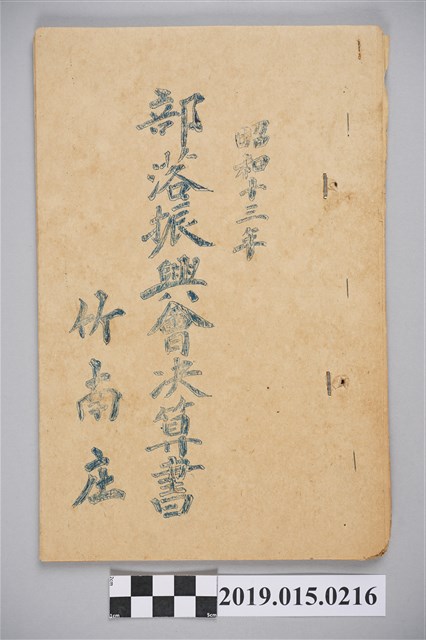 昭和十三年
部落振興會决算書
竹南庄
2019.015.0216